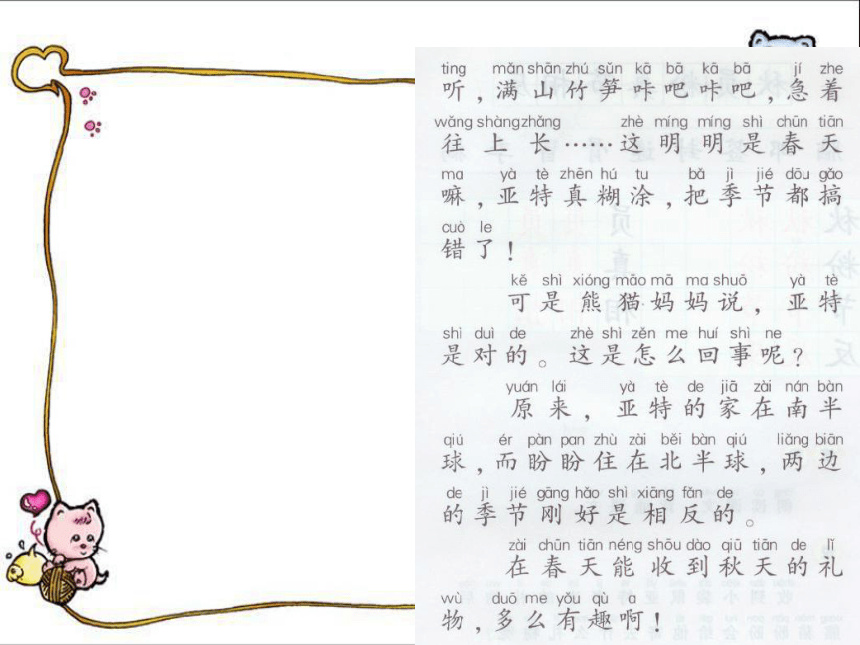 tīng mǎn shān zhú sǔn kā bā kā bā jí zhe
听，满山竹笋咔吧咔吧，急着
wǎng shàng zhǎng zhè míng míng shì chūn tiān
往上长……这明明是春天
ma yà tè zhēn hú tu bǎ jì jié dōu gǎo
嘛，亚特真糊涂，把季节都搞
cuò le
错了！
kě shì xióng māo mā ma shuō yà tè
可是熊猫妈妈说，亚特
shì duì de zhè shì zěn me huí shì ne
是对的。这是怎么回事呢？
yuán lái yà tè de jiā zài nán bàn
原来，亚特的家在南半
qiú ér pàn pan zhù zài běi bàn qiú liǎng biān
球，而盼盼住在北半球，两边
de jì jié gāng hǎo shì xiāng fǎn de
的季节刚好是相反的。
zài chūn tiān néng shōu dào qiū tiān de lǐ
在春天能收到秋天的礼
wù duō me yǒu qù a
物，多么有趣啊！